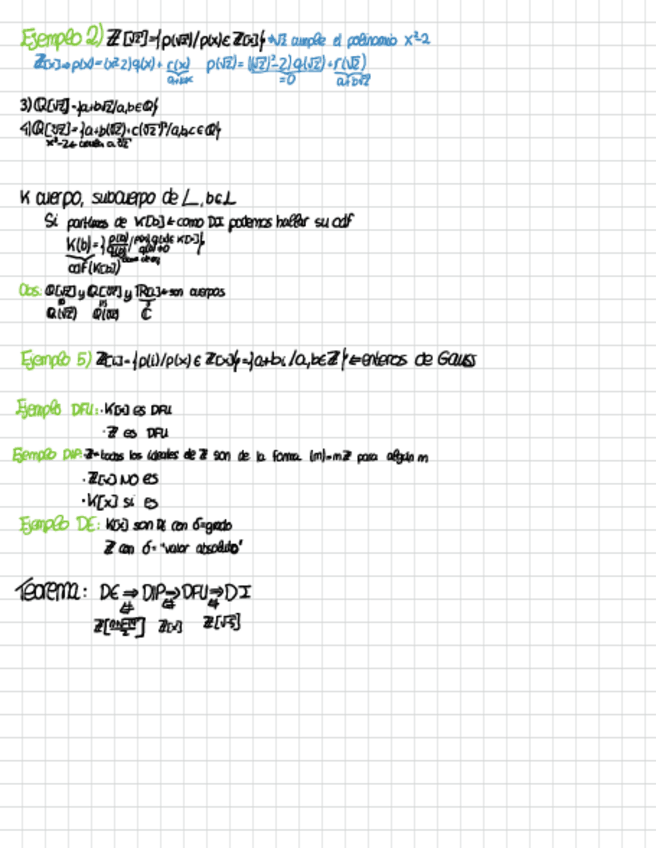 Ejemplo 2) Z[√2]={p(√2)/p(x)∈Z[x]} →√2 cumple el polinomio x²-2
Z[x]→p(x)=(x²-2)q(x)+r(x) p(√2)=((√2)²-2)q(√2)+r(√2)
a+bx =0 a+b√2
3) Q[√2]={a+b√2/a,b∈Q}
4) Q[∛2]={a+b(∛2)+c(∛2)²/a,b,c∈Q}
x³-2
K cuerpo, subcuerpo de L, b∈L
Si partimos de K[b] ← como DI podemos hallar su cdf
K(b)={p(b)/q(b) / p(x),q(x)∈K[x], q(b)≠0}
cdf(K[b])
Obs: Q[√2] y Q[∛2] y R[i] ← son cuerpos
Q(√2) Q(∛2) C
Ejemplo 5) Z[i]={p(i)/p(x)∈Z[x]}={a+bi/a,b∈Z} ← enteros de Gauss
Ejemplo DFU: ·K[x] es DFU
·Z es DFU
Ejemplo DIP: Z→todos los ideales de Z son de la forma (m)=mZ para algún m
·Z[x] NO es
·K[x] sí es
Ejemplo DE: K[x] son DE con δ=grado
Z con δ="valor absoluto"
Teorema: DE ⇒ DIP ⇒ DFU ⇒ DI
⇍ ⇍ ⇍
Z[x]